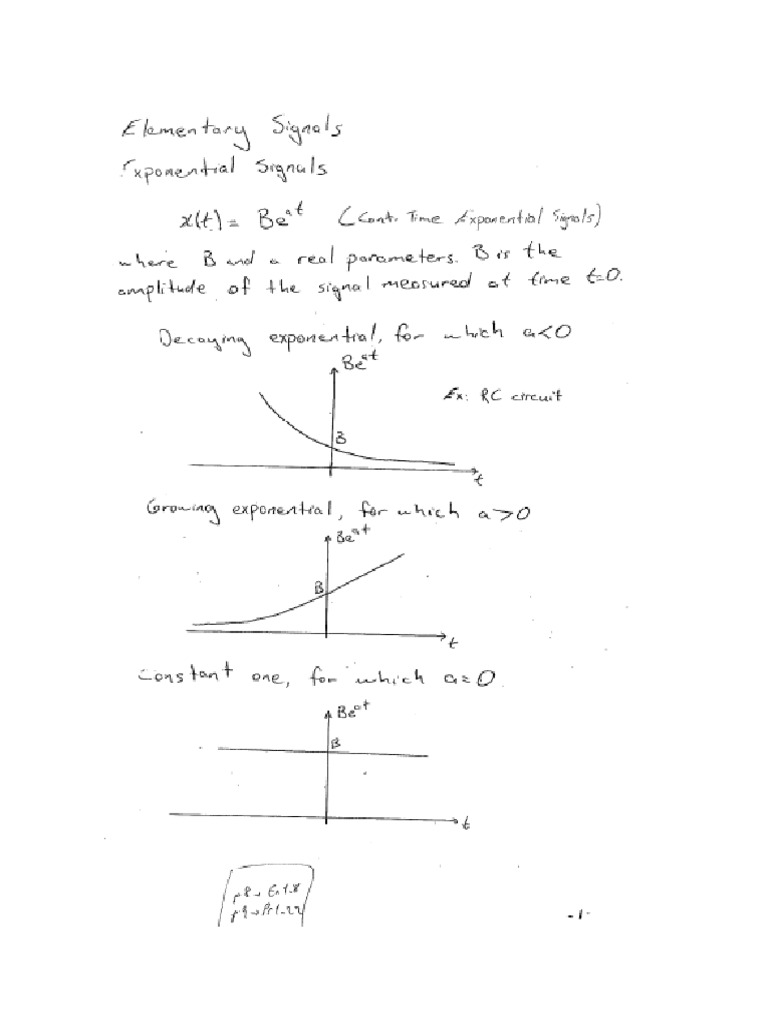 Elementary Signals
Exponential Signals
x(t) = Be^at (Cont. Time Exponential Signals)
where B and a real parameters. B is the
amplitude of the signal measured at time t=0.
Decaying exponential, for which a<0
Be^at
Ex: RC circuit
B
t
Growing exponential, for which a>0
Be^at
B
t
Constant one, for which a=0
Be^at
B
t
p8→
p9→
-1-